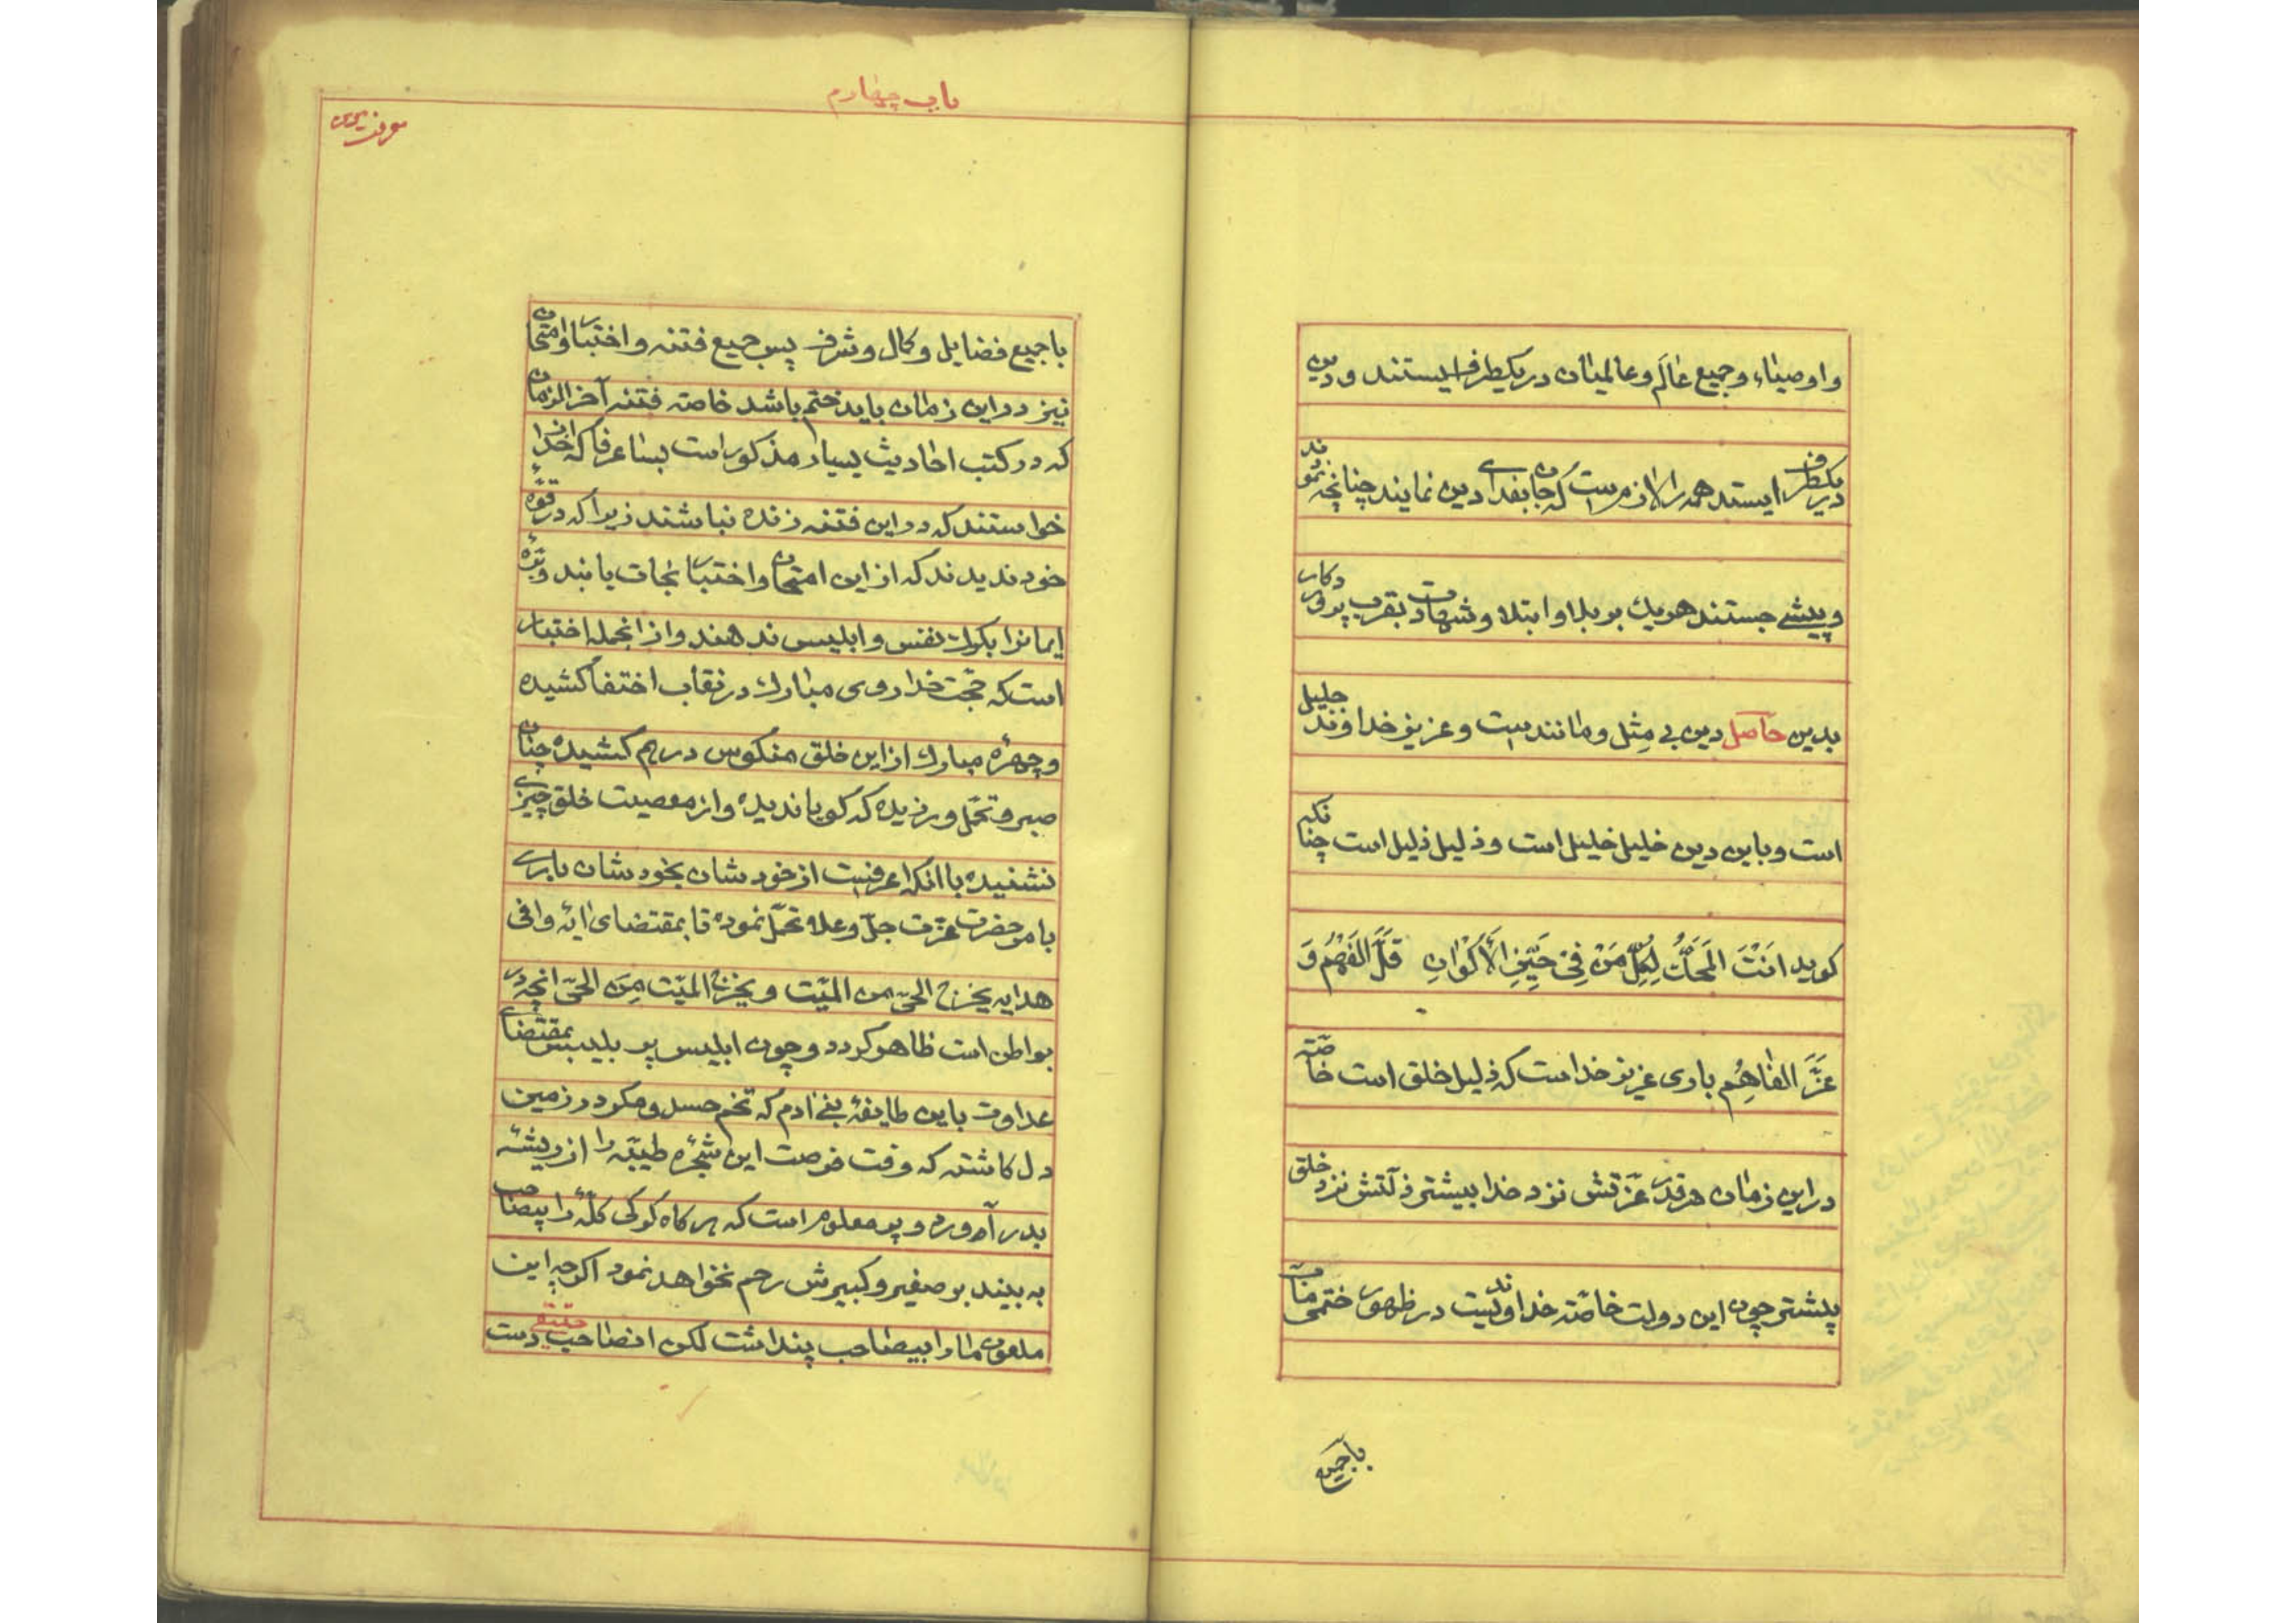 و اوصیاء و جمیع عالم و عالمیان در یکطرف ایستند و دین
در یکطرف ایستد همه را لازمست که جان بفدای دین نمایند چنانچه نمودند
و پیشی جستند هر یك بر بلا و ابتلا و شهادت بقرب پروردکار
بدین حاصل دین بی مِثل و مانندست و عزیز خداوند جلیل
است و باین دین خلیل خلیل است و ذلیل ذلیل است چنانکه
کوید اَنْتَ المَحَلُّ لِكُلِّ مَنْ فِی حَیِّزِ الأَكْوانِ قَلَّ الفَهْمُ وَ
عَزَّ الفاهِمُ باری عزیز خداست که ذلیل خلق است خاصّه
در این زمان هر قدر عزّتش نزد خدا بیشتر ذلّتش نزد خلق
بیشتر چون این دولت خاصّه خداوندیست در ظهور ختمی مآب
با جمیع
باب چهارم
با جمیع فضایل و کمال و شرف پس جمیع فتنه و اختبار و امتحان
نیز در این زمان باید ختم باشد خاصه فتنه آخر الزمان
که در کتب احادیث بسیار مذکور است بسا عرفا که از خدا
خواستند که در این فتنه زنده نباشند زیرا که در قوّهٔ
خود ندیدند که از این امتحان و اختبار نجات یابند و برّهٔ
ایمانرا بکرك نفس و ابلیس ندهند و از انجمله اختبار
است که حجّت خدا روی مبارك در نقاب اختفا کشیده
و چهرهٔ مبارك از این خلق منکوس درهم کشیده چنان
صبر و تحمّل ورزیده که کویا ندیده و از معصیت خلق چیزی
نشنیده با آنکه اعرفست از خودشان بخودشان باری
بامر حضرت عزّت جلّ و علا تحمّل نموده تا بمقتضای ایهٔ وافی
هدایه یخرج الحیّ من المیّت و یخرج المیّت مِنَ الحیّ انچه در
بواطن است ظاهر کردد و چون ابلیس پر تلبیس بمقتضای
عداوت باین طایفهٔ بنی ادم که تخم حسد و مکر در زمین
دل کاشته که وقت فرصت این شجرهٔ طیبّه را از ریشه
بدر آورد و پر معلوم است که هر کاه کرکی کلّهٔ را بیصاحب
به بیند بر صغیر و کبیرش رحم نخواهد نمود اکرچه این
ملعون ما را بیصاحب پنداشت لکن انصاحب حقیقی دست